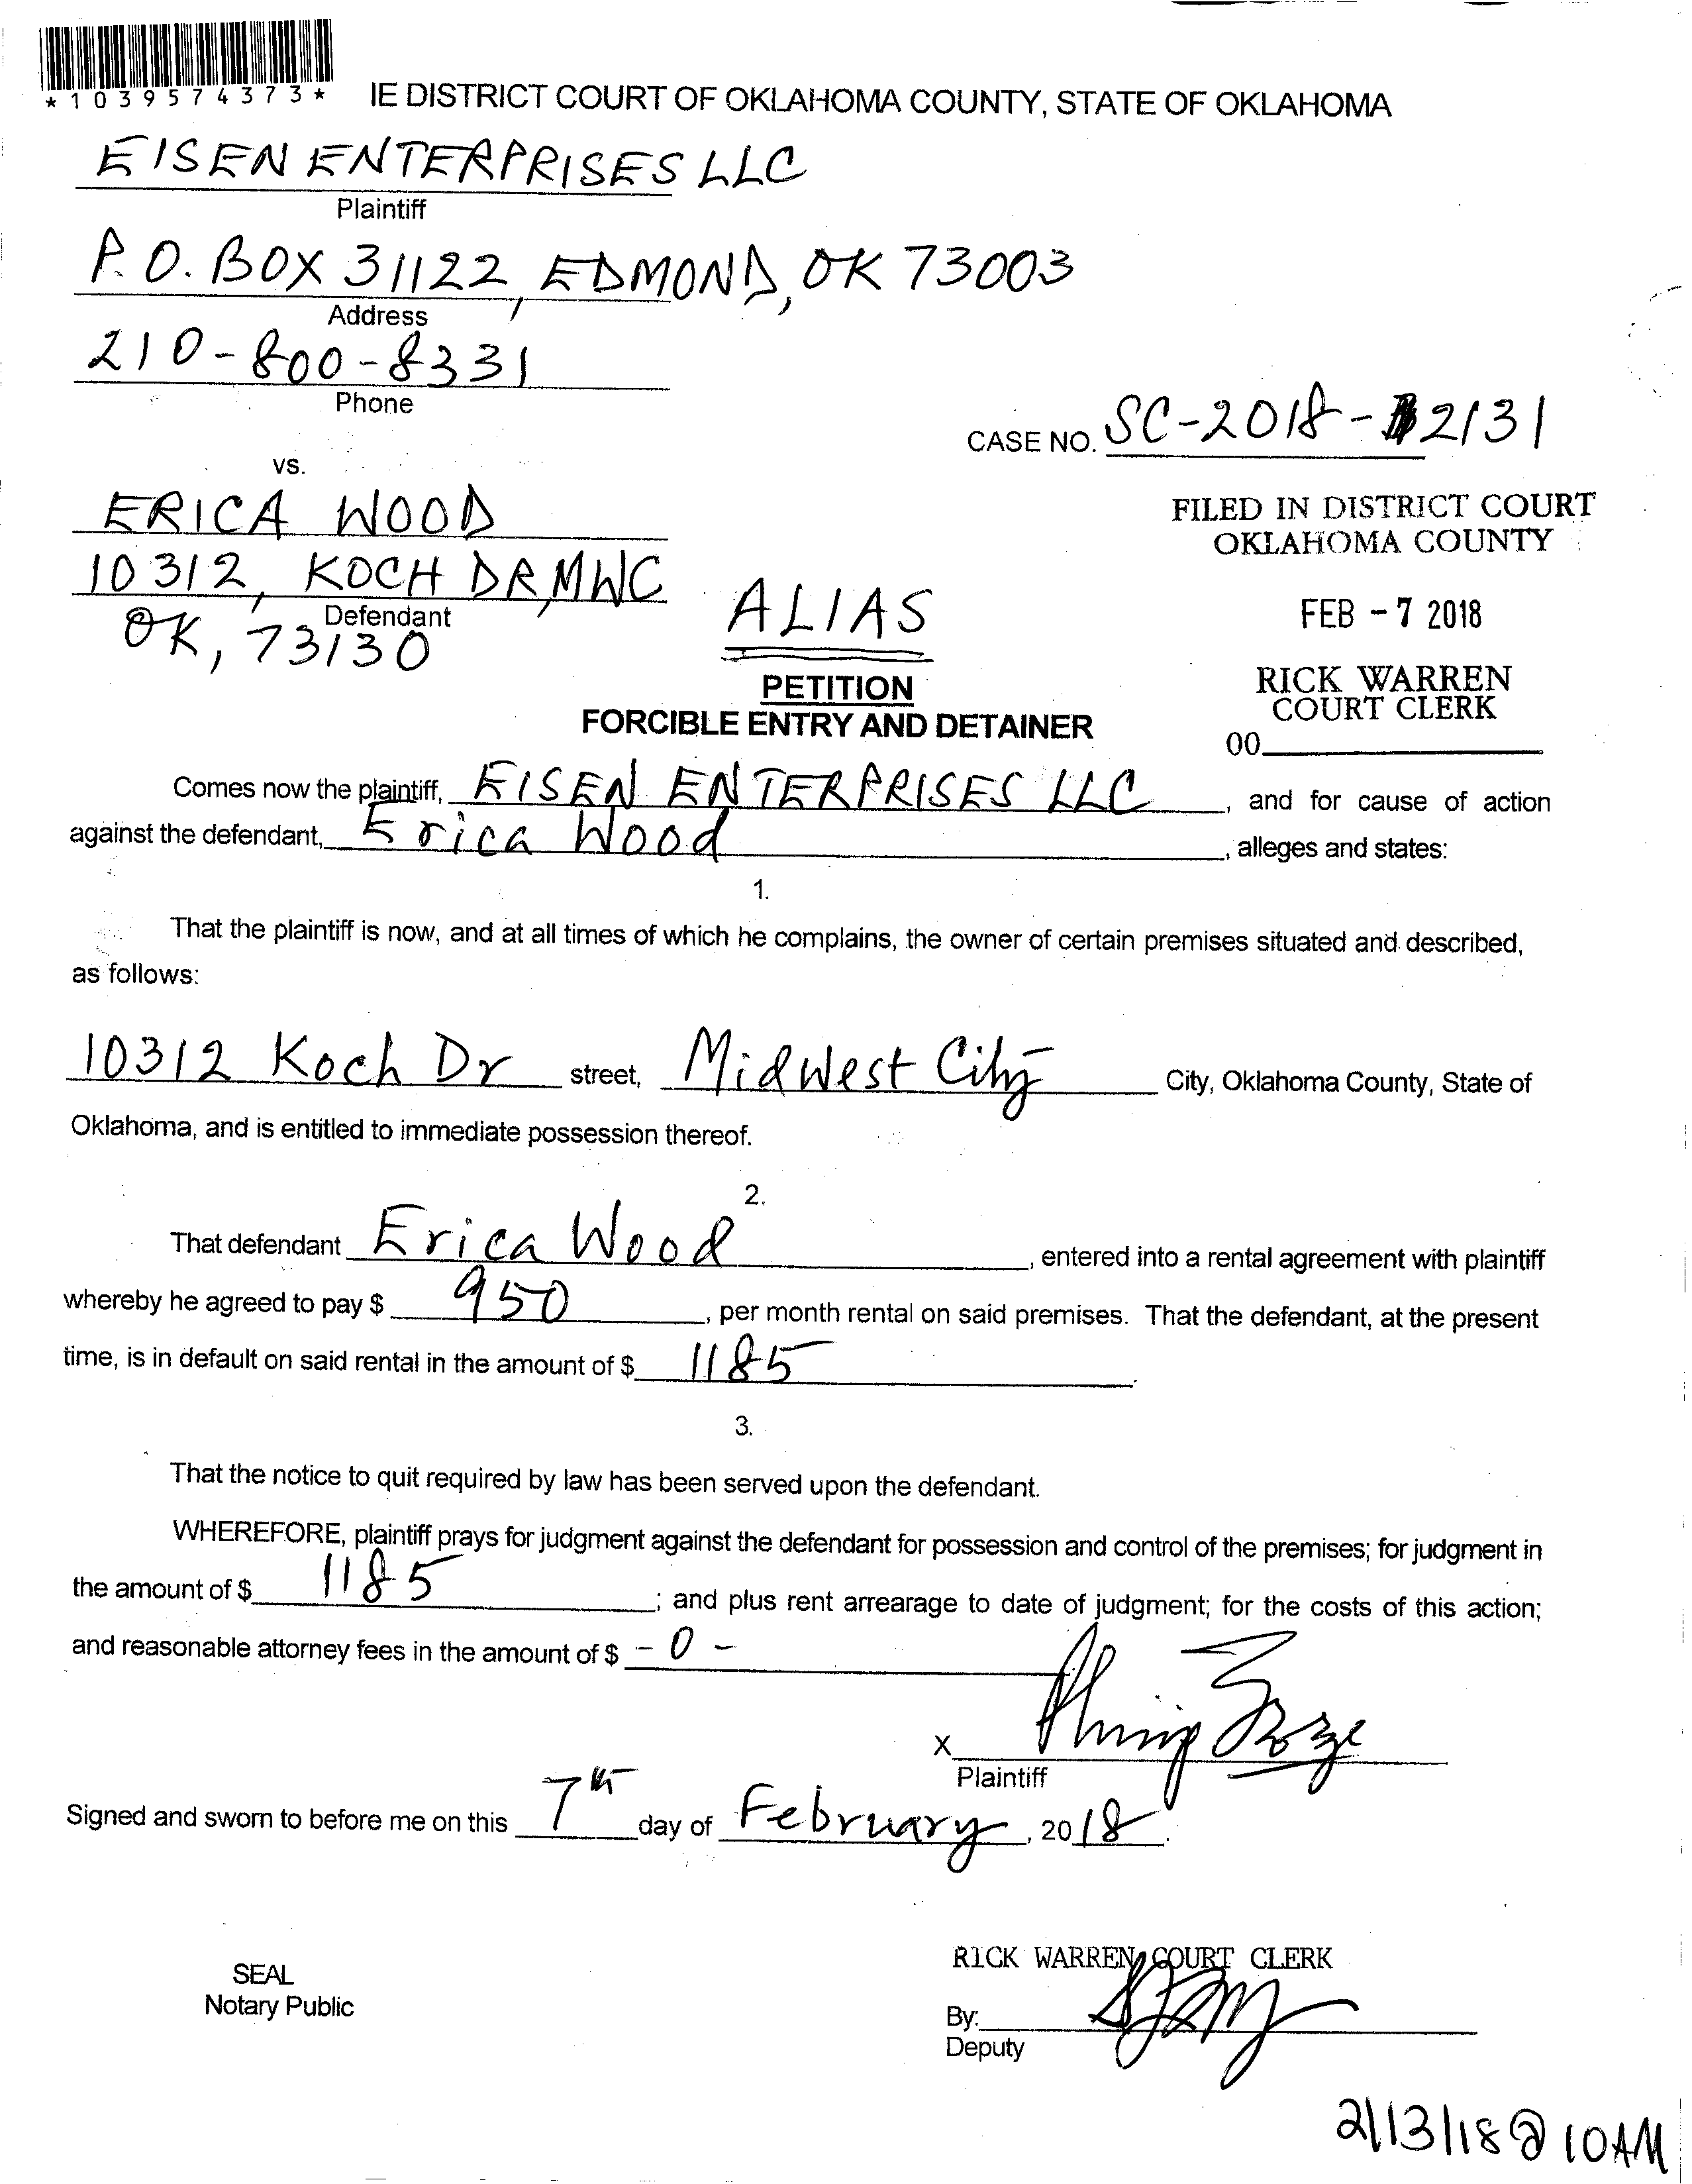 *1039574373*
IE DISTRICT COURT OF OKLAHOMA COUNTY, STATE OF OKLAHOMA
EISEN ENTERPRISES LLC
Plaintiff
P.O. BOX 31122, EDMOND, OK 73003
Address
210-800-8331
Phone
CASE NO. SC-2018-2131
vs.
ERICA WOOD
10312, KOCH DR, MWC
Defendant
OK, 73130
FILED IN DISTRICT COURT
OKLAHOMA COUNTY
FEB -7 2018
RICK WARREN
COURT CLERK
00
ALIAS
PETITION
FORCIBLE ENTRY AND DETAINER
Comes now the plaintiff, EISEN ENTERPRISES LLC, and for cause of action
against the defendant, Erica Wood, alleges and states:
1.
That the plaintiff is now, and at all times of which he complains, the owner of certain premises situated and described,
as follows:
10312 Koch Dr street, Midwest City City, Oklahoma County, State of
Oklahoma, and is entitled to immediate possession thereof.
2.
That defendant Erica Wood, entered into a rental agreement with plaintiff
whereby he agreed to pay $ 950, per month rental on said premises. That the defendant, at the present
time, is in default on said rental in the amount of $ 1185.
3.
That the notice to quit required by law has been served upon the defendant.
WHEREFORE, plaintiff prays for judgment against the defendant for possession and control of the premises; for judgment in
the amount of $ 1185; and plus rent arrearage to date of judgment; for the costs of this action;
and reasonable attorney fees in the amount of $ - 0 -
X
Plaintiff
Signed and sworn to before me on this 7th day of February, 2018.
SEAL
Notary Public
RICK WARREN, COURT CLERK
By:
Deputy
2/13/18 @ 10AM